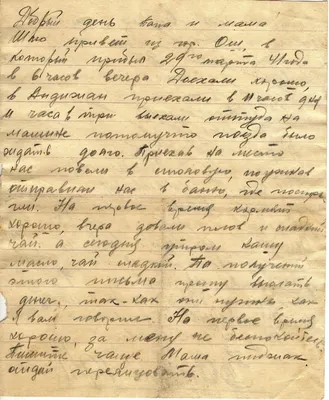 Добрый день папа и мама!
Шлю привет из гор. Ош, в
который прибыл 29го марта 41 года
в 6 часов вечера Доехали хорошо,
в Андижан приехали в 11 часов дня
и часа в три выехали оттуда на
машине потомучто поезда было
ждать долго. Приехав на место
нас повели в столовую, поужинав
отправили нас в баню, где постри-
гли. На первое время кормят
хорошо, вчера довали плов и сладкий
чай, а сегодня утром кашу
масло, чай сладкий. По получении
этого письма прошу выслать
денег, так-как они нужны как
я вам говорил. На первое время
хорошо, за меня не беспокойтесь
Пишите чаще Мама пиджак
отдай перелицовать.